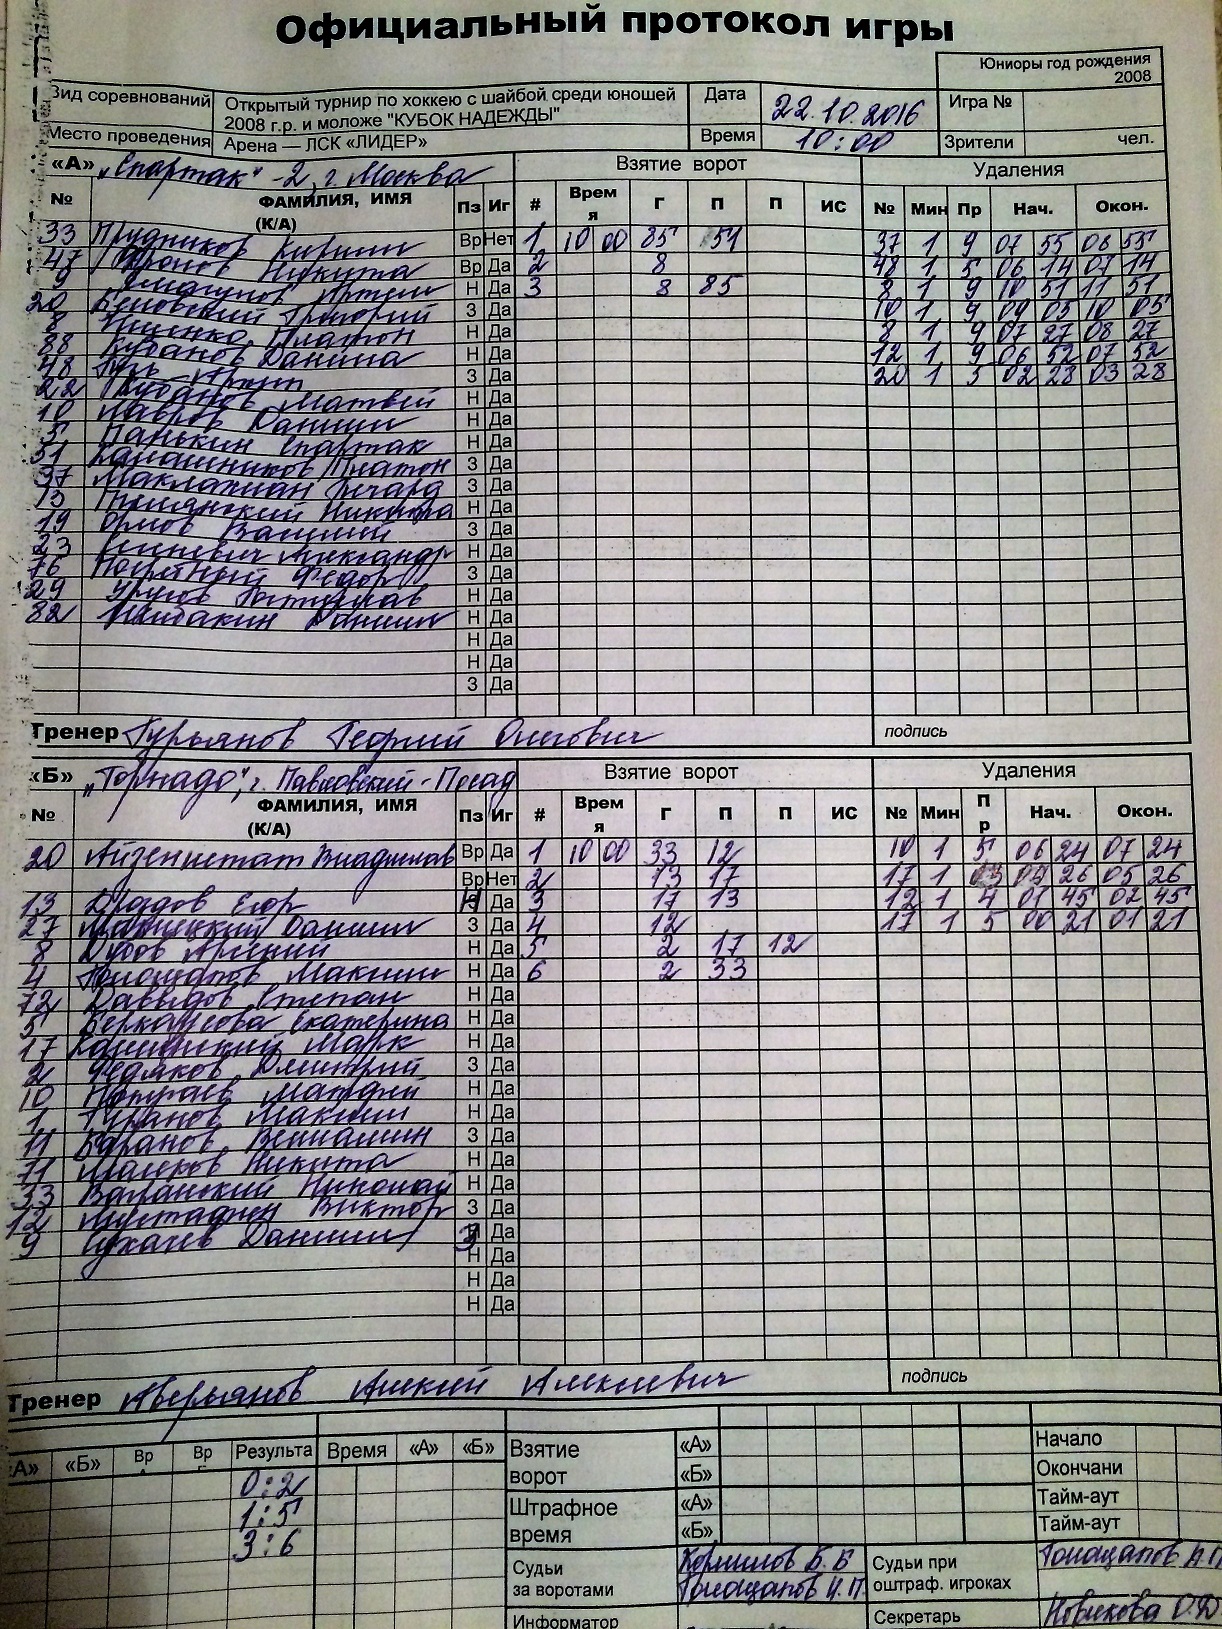 Официальный протокол игры
Юниоры год рождения
2008
Вид соревнований Открытый турнир по хоккею с шайбой среди юношей Дата 22.10.2016 Игра №
2008 г.р. и моложе "КУБОК НАДЕЖДЫ"
Место проведения Арена — ЛСК «ЛИДЕР» Время 10:00 Зрители чел.
«А» „Спартак"-2, г. Москва Взятие ворот Удаления
№ ФАМИЛИЯ, ИМЯ (К/А) Пз Иг # Время Г П П ИС № Мин Пр Нач. Окон.
33 Прудников Кирилл Вр Нет 1 10 00 85 51 37 1 9 07 55 08 55
47 Никита Вр Да 2 8 48 1 5 06 14 07 14
9 Артем Н Да 3 8 85 8 1 9 10 51 11 51
20 Беловский Григорий З Да 10 1 9 09 05 10 05
8 Ищенко Платон Н Да 8 1 9 07 27 08 27
88 Кубанов Данила Н Да 12 1 9 06 52 07 52
48 З Да 20 1 5 02 28 03 28
22 Кубанов Матвей Н Да
10 Лавров Даниил Н Да
5 Панькин Спартак Н Да
51 Калашников Платон З Да
37 Маклахиан Ричард З Да
13 Никита Н Да
19 Орлов Василий З Да
23 Александр Н Да
76 Федор З Да
29 Ростислав Н Да
82 Даниил Н Да
Н Да
Н Да
З Да
Тренер Гурьянов Георгий Олегович подпись
«Б» „Торнадо", г. Павловский-Посад Взятие ворот Удаления
№ ФАМИЛИЯ, ИМЯ (К/А) Пз Иг # Время Г П П ИС № Мин Пр Нач. Окон.
20 Айзенштат Владислав Вр Да 1 10 00 33 12 10 1 5 06 24 07 24
Вр Нет 2 13 17 17 1 04 26 05 26
13 Дроздов Егор Н Да 3 17 13 12 1 4 01 45 02 45
27 Даниил З Да 4 12 17 1 5 00 21 01 21
8 Дудов Арсений Н Да 5 2 17 12
4 Голощапов Максим Н Да 6 2 33
72 Давыдов Степан Н Да
5 Беркаусова Екатерина Н Да
17 Марк Н Да
2 Федяков Дмитрий З Да
10 Матфей Н Да
1 Гуранов Максим Н Да
11 Баранов Вениамин З Да
71 Никита Н Да
33 Николай Н Да
12 Виктор З Да
9 Сухачев Даниил З Да
Н Да
Н Да
Н Да
Тренер Аверьянов Алексей Алексеевич подпись
«А» «Б» Вр Вр Результа Время «А» «Б» Взятие ворот «А» Начало
0:2 «Б» Окончани
1:5 Штрафное время «А» Тайм-аут
3:6 «Б» Тайм-аут
Судьи за воротами Кормилов Б.Б Судьи при оштраф. игроках Голощапов И.П
Голощапов И.П.
Информатор Секретарь Новикова О.Ф.